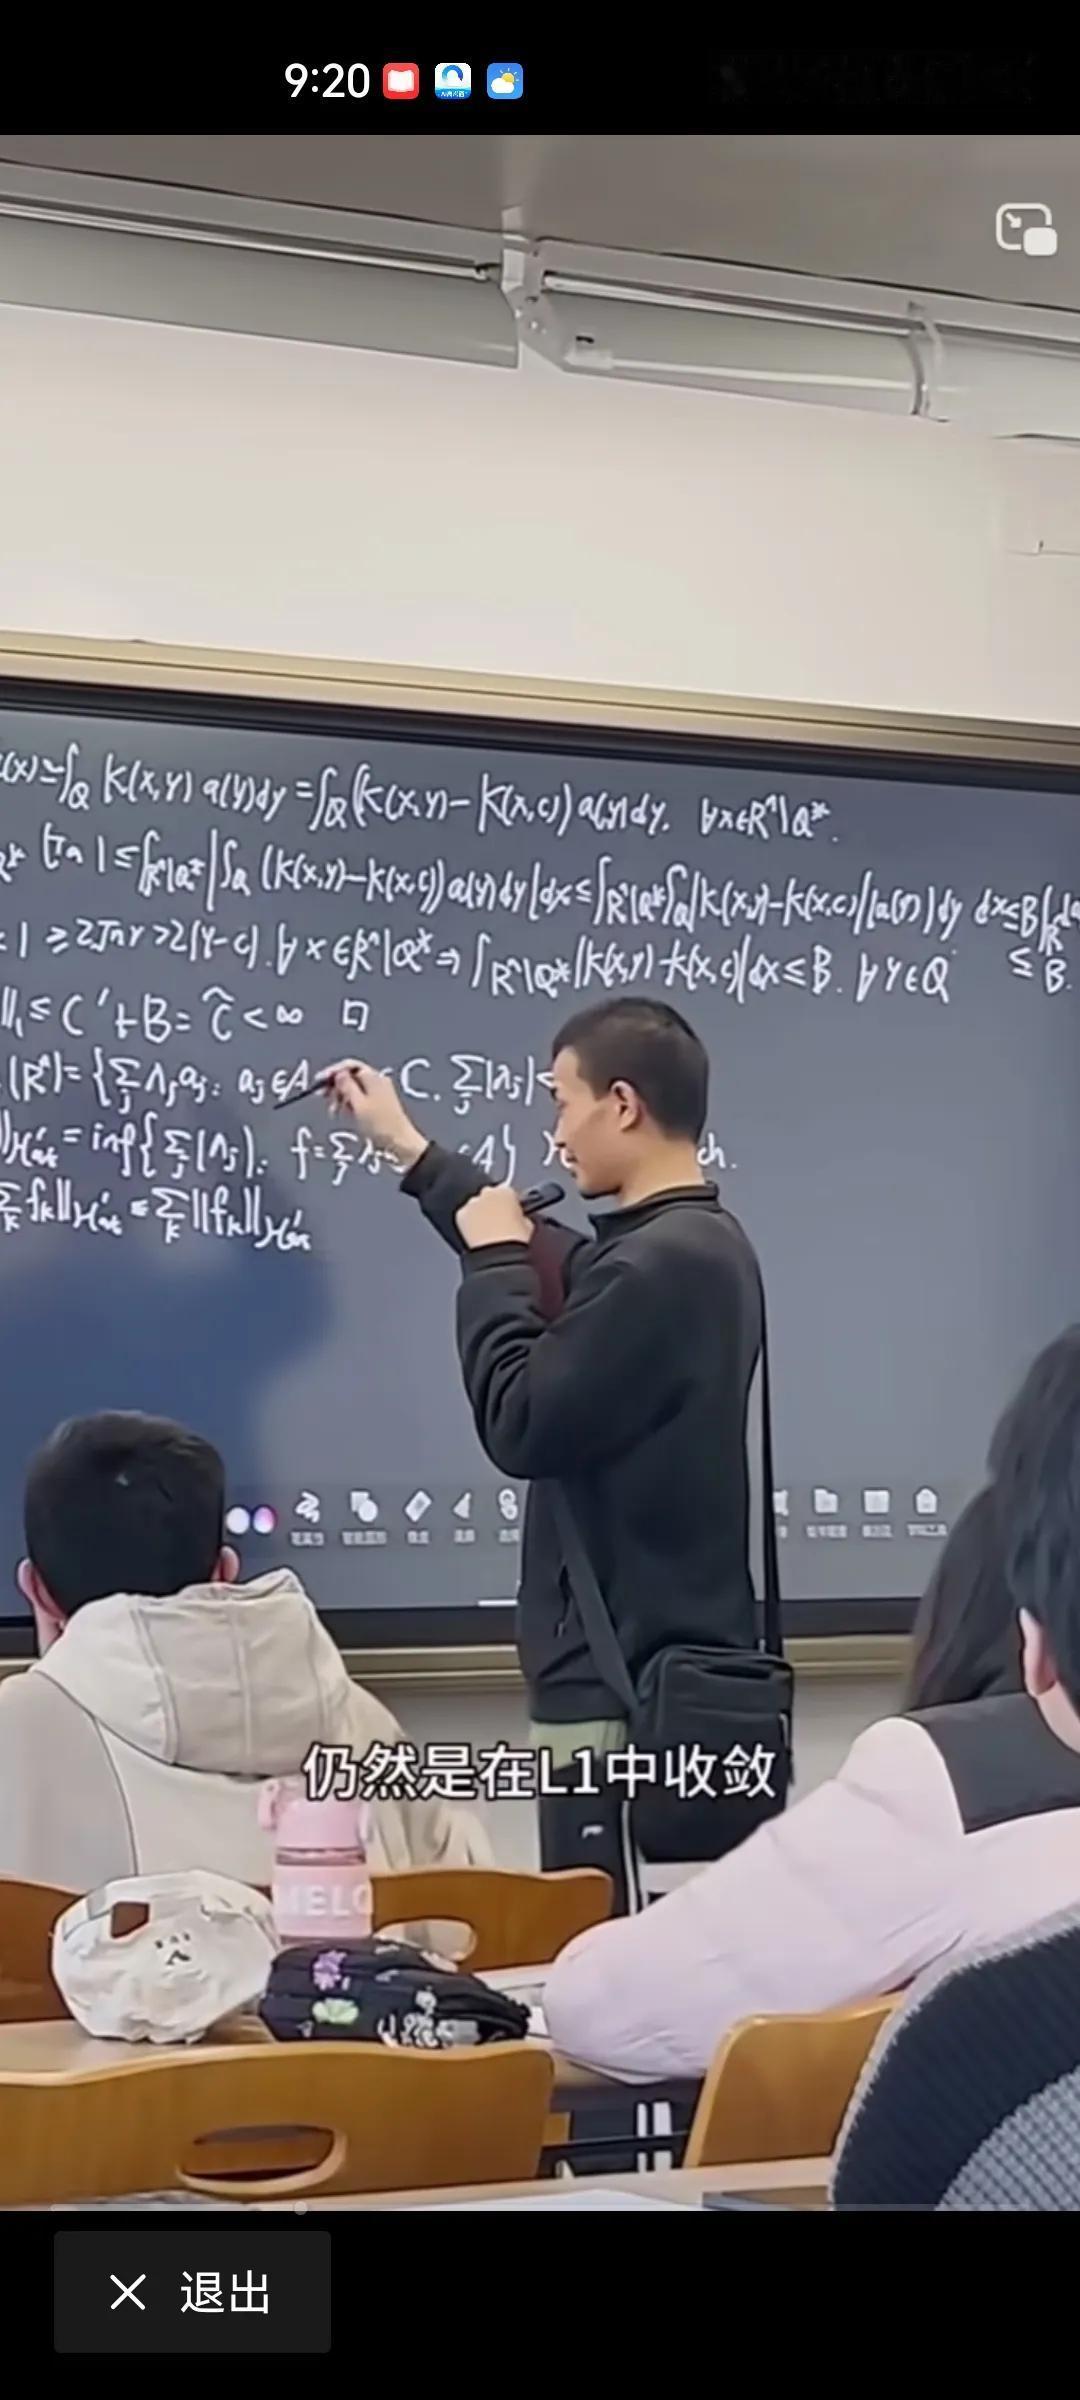 9:20
(x)=∫_Q K(x,y) a(y)dy = ∫_Q (K(x,y) - K(x,c)) a(y)dy. ∀x∈R^n\Q*.
|Ta| ≤ ∫_{R^n\Q*} |∫_Q (K(x,y) - K(x,c)) a(y)dy| dx ≤ ∫_{R^n\Q*} ∫_Q |K(x,y) - K(x,c)| |a(y)| dy dx ≤ B∫
| ≥ 2√n r > 2|y-c|. ∀x∈R^n\Q* ⇒ ∫_{R^n\Q*} |K(x,y) - K(x,c)| dx ≤ B. ∀y∈Q ≤ B.
||₁ ≤ C' + B = C̃ < ∞ □
(R^n) = {∑_j λ_j a_j: a_j ∈ A C. ∑_j |λ_j| <
||_{H'at} = inf{∑_j |λ_j|: f = ∑_j λ_j A} ch.
∑_k f_k||_{H'at} ≤ ∑_k ||f_k||_{H'at}
仍然是在L1中收敛
退出